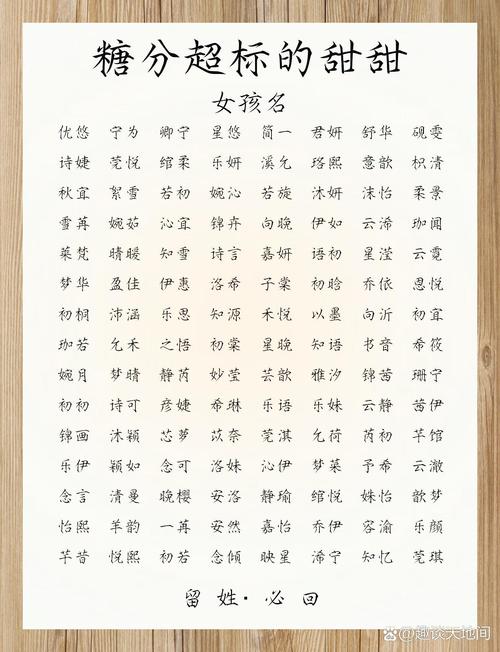 糖分超标的甜甜
女孩名
优悠 宁为 卿宁 星悠 简一 君妍 舒华 砚雯
诗婕 莞悦 绾柔 乐妍 溪允 珞熙 意歆 枳清
秋宜 絮雪 若初 婉沁 若旋 沐妍 沫怡 柔景
雪苒 婉茹 沁宜 锦卉 向晚 伊如 云浠 珈闻
菜梵 晴暖 知雪 诗言 嘉妍 语初 星滢 云霓
梦华 盈佳 伊惠 洛希 子棠 初晗 乔依 思悦
初桐 沛涵 乐思 知源 禾悦 以墨 向沂 初宜
珈若 允禾 之悟 初棠 星晚 知语 书音 希筱
婉月 梦晴 静芮 妙莹 芸歆 雅汐 锦茜 珊宁
初初 诗可 彦婕 希琳 乐语 乐妹 云静 茜伊
锦画 沐颖 芯萝 苡奈 莞淇 允荷 芮初 芊馆
乐伊 颖如 念可 洛妹 沁伊 梦菜 予希 云澈
念言 清曼 晚樱 安洛 静瑜 绾悦 姝怡 歆梦
怡熙 羊韵 一苒 安然 嘉怡 乔伊 容渝 乐颜
芊昔 悦熙 初若 念倾 映星 浠宁 知忆 莞琪
留姓·必回
@趣谈天地间